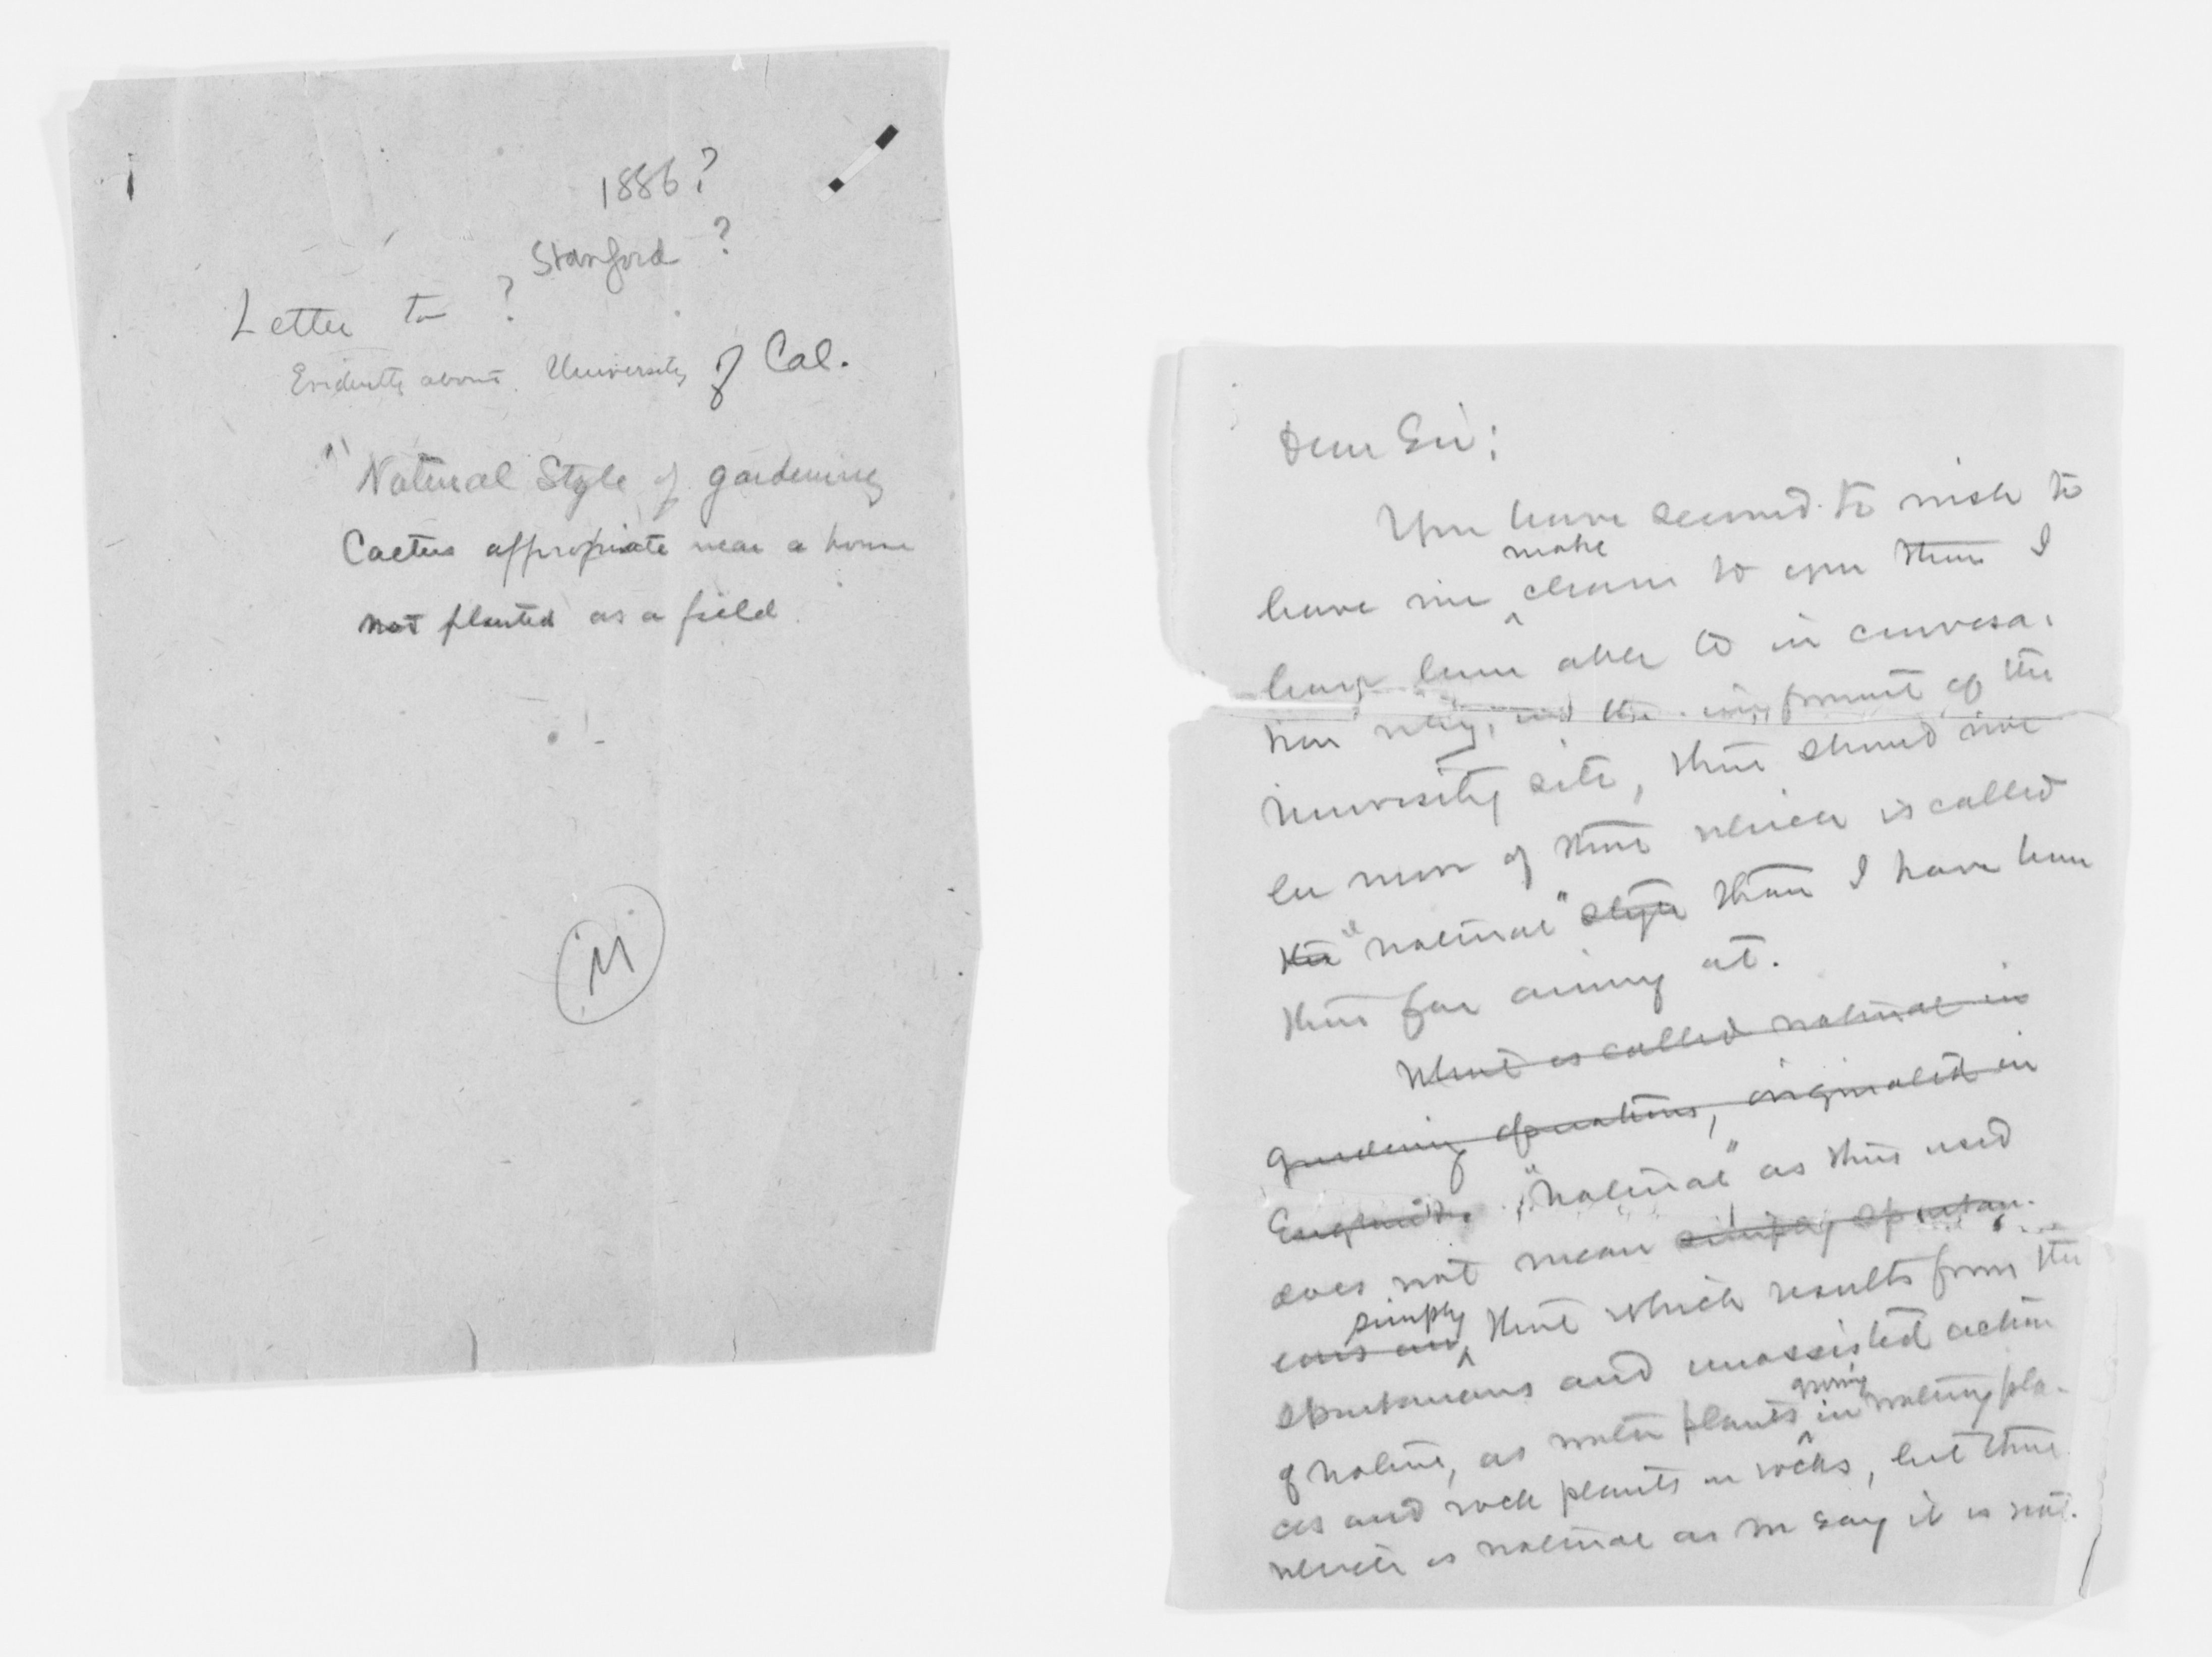 1886?
Stanford ?
Letter to ?
Evidently about University of Cal.
"Natural Style of gardening
Cactus appropriate near a house
not planted as a field.
M
Dear Sir;
You have seemed to wish to
make
have me clearer to you than I
have been able to in conversa-
tion why, in the improvement of the
University site, there should not
be more of that which is called
the "natural" style than I have been
thus far aiming at.
What is called natural in
gardening operations, originated in
England. "Natural" as thus used
does not mean simply spontan-
simply
eous and that which results from the
spontaneous and unassisted action
growing
of nature, as water plants in watery pla-
ces and rock plants on rocks, but that
which is natural as we say it is nat-